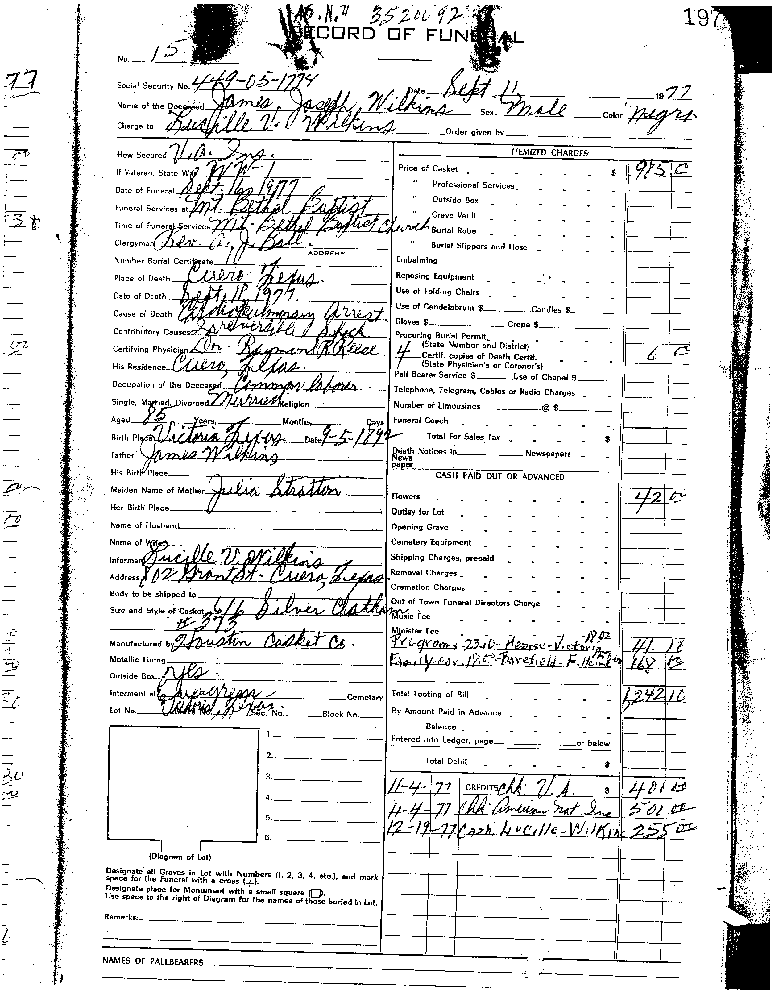 197
3520092
RECORD OF FUNERAL
No. 15
77
Social Security No. 449-05-1774
Date Sept 11 1977
Name of the Deceased James, Joseph, Wilkins Sex Male Color Negro
Charge to Lucille V. Wilkins Order given by
How Secured V.A. Ins.
If Veteran, State War W W-1
Date of Funeral Sept. 1977
Funeral Services at Mt. Bethel Baptist
Time of Funeral Service Mt. Bethel Baptist Church
Clergyman Rev. A. J. Ball
ADDRESS
Number Burial Certificate
Place of Death Cuero, Texas.
Date of Death Sept. 1977
Cause of Death Cardiopulmonary Arrest
Contributory Causes Irreversible Shock
Certifying Physician Dr. Raymond R. Reese
His Residence Cuero, Texas.
Occupation of the Deceased Common laborer
Single, Married, Divorced Married Religion
Aged 85 Years Months Days
Birth Place Victoria Texas Date 9-5-1892
Father James Wilkins
His Birth Place
Maiden Name of Mother Julia Stratton
Her Birth Place
Name of Husband
Name of Wife
Informant Lucille V. Wilkins
Address 802 Grant St. Cuero, Texas
Body to be shipped to
Size and Style of Casket 6/6 Silver Chatham
# 373
Manufactured by Houston Casket Co.
Metallic Lining
Outside Box yes
Interment at Evergreen Cemetery
Lot No. Sec. No. Block No.
1
2
3
4
5
6
(Diagram of Lot)
Designate all Graves in Lot with Numbers (1, 2, 3, 4, etc.), and mark
space for the Funeral with a cross (+).
Designate place for Monument with a small square
Use space to the right of Diagram for the names of those buried in Lot.
Remarks:
NAMES OF PALLBEARERS
ITEMIZED CHARGES
Price of Casket $ 975
" Professional Services
" Outside Box
" Grave Vault
" Burial Robe
" Burial Slippers and Hose
Embalming
Reposing Equipment
Use of Folding Chairs
Use of Candelabrum $ Candles $
Gloves $ Crepe $
Procuring Burial Permit
(State Number and District)
4 Certif. copies of Death Certif. 6
(State Physician's or Coroner's)
Pall Bearer Service $ Use of Chapel $
Telephone, Telegram, Cables or Radio Charges
Number of Limousines @ $
Funeral Coach
Total For Sales Tax $
Death Notices in Newspapers
News
paper
CASH PAID OUT OR ADVANCED
Flowers 42 00
Outlay for Lot
Opening Grave
Cemetery Equipment
Shipping Charges, prepaid
Removal Charges
Cremation Charges
Out of Town Funeral Directors Charge
Music Fee
Minister Fee
Programs 23.10
41 18
Total Footing of Bill 1,242 10
By Amount Paid in Advance
Balance
Entered into Ledger, page or below
Total Debit $
11-4-77 CREDITS Chk. V.A. $ 401 00
11-4-77 Chk American Nat Ins 501 00
12-19-77 Cash Lucille Wilkins 255 00